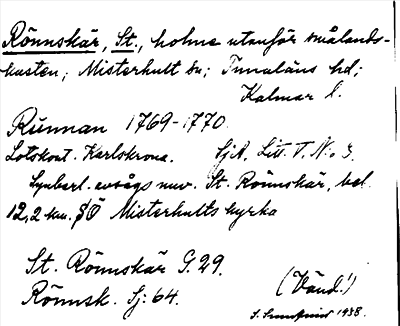 Rönnskär, St., holme utanför smålands-
kusten; Misterhult sn; Tunaläns hd;
Kalmar l.
Runnan 1769-1770.
Lotskont. Karlskrona. SjA. Litt. T. No 3.
Synbarl. avsågs nuv. St. Rönnskär, bel.
12,2 km. SÖ Misterhults kyrka
St. Rönnskär G. 29.
Rönnsk. Sj: 64. (Vänd!)
1938.